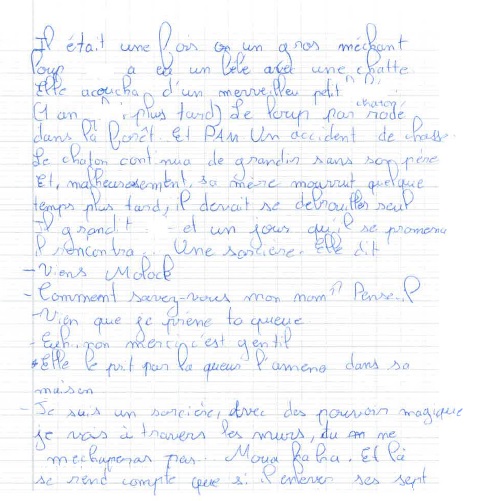 Il était une fois un gros méchant
loup a eu un bébé avec une chatte
Elle acoucha d'un merveilleu petit
charon
(1 an plus tard) Le loup par rodé
dans la forêt. Et PAM Un accident de chasse.
Le chaton continua de grandir sans son père
Et, malheuresement, sa mère mourrut quelque
temps plus tard, il devait se debrouiller seul
Il grandit et un jours qu'il se promena
il rencontra Une sorcière. Elle dit
- Viens Moloch
- Comment savez-vous mon nom? Pense-il
- Vien que je prène ta queue
- Euh, non merci c'est gentil
Elle le prit par la queue l'amena dans sa
maison
- Je suis un sorcière, avec des pouvoir magique
je vais à travers les murs, tu me
mechaperas pas. Moua haha. Et là
se rend compte que si l'enlever ses sept